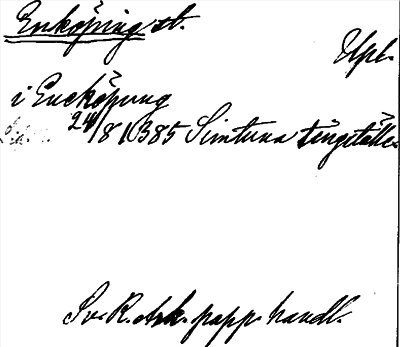 Enköping st.
Upl.
i Enekøpung
24/8 1385 Simtuna tingställe
Sv. R. Ark. papp. handl.